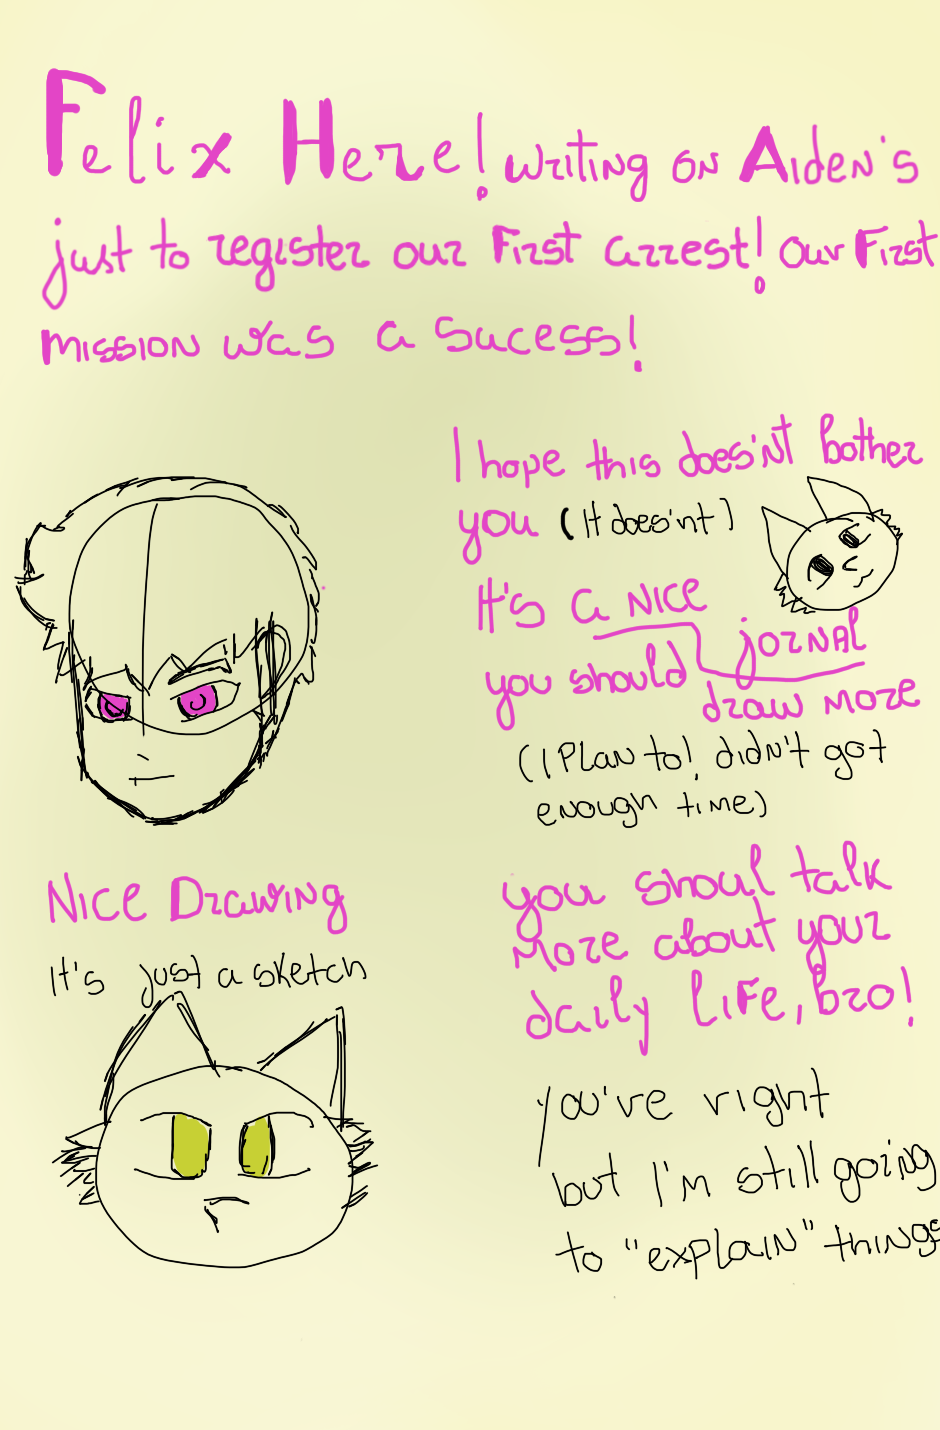 Felix Here! writing on Aiden's
just to register our First arrest! Our First
mission was a sucess!
I hope this does'nt bother
you (It does'nt)
It's a nice jornal
you should draw more
(I Plan to! didn't got
enough time)
Nice Drawing
It's just a sketch
you shoul talk
more about your
daily life, bro!
you've right
but I'm still going
to "explain" things